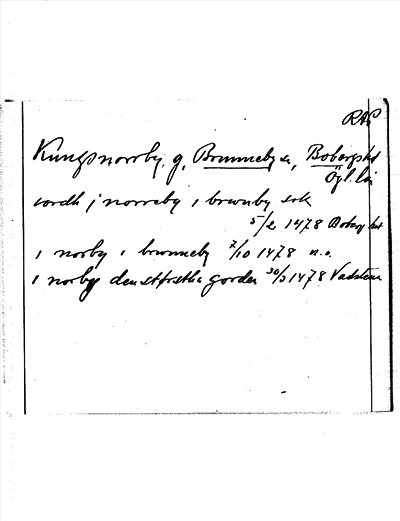 RAP
Kungsnorrby, g, Brunneby sn, Bobergs hd
Ögl. län
iordh j norreby i brwnby sok
5/2 1478 Boberg hd
i norby i brwnneby 7/10 1478 n.o.
i norby den størstha gorden 30/3 1478 Vadstena